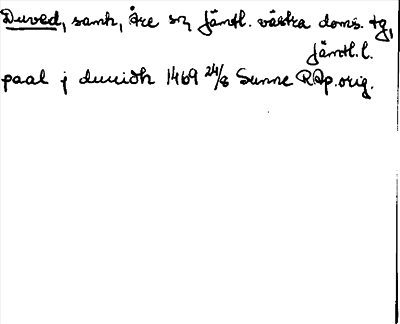 Duved, samh, Åre sn, Jämtl. västra doms. tg,
Jämtl. l.
paal j duuidh 1469 24/8 Sunne RAp. orig.